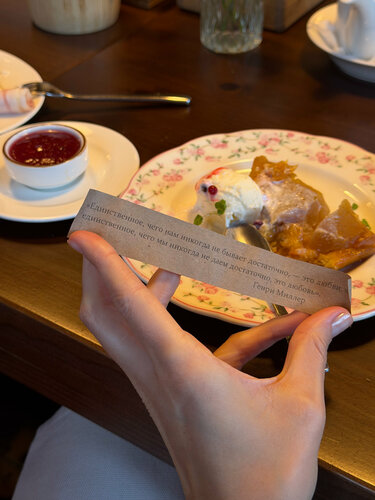 «Единственное, чего нам никогда не бывает достаточно, — это любви,
единственное, чего мы никогда не даем достаточно, это любовь».
Генри Миллер